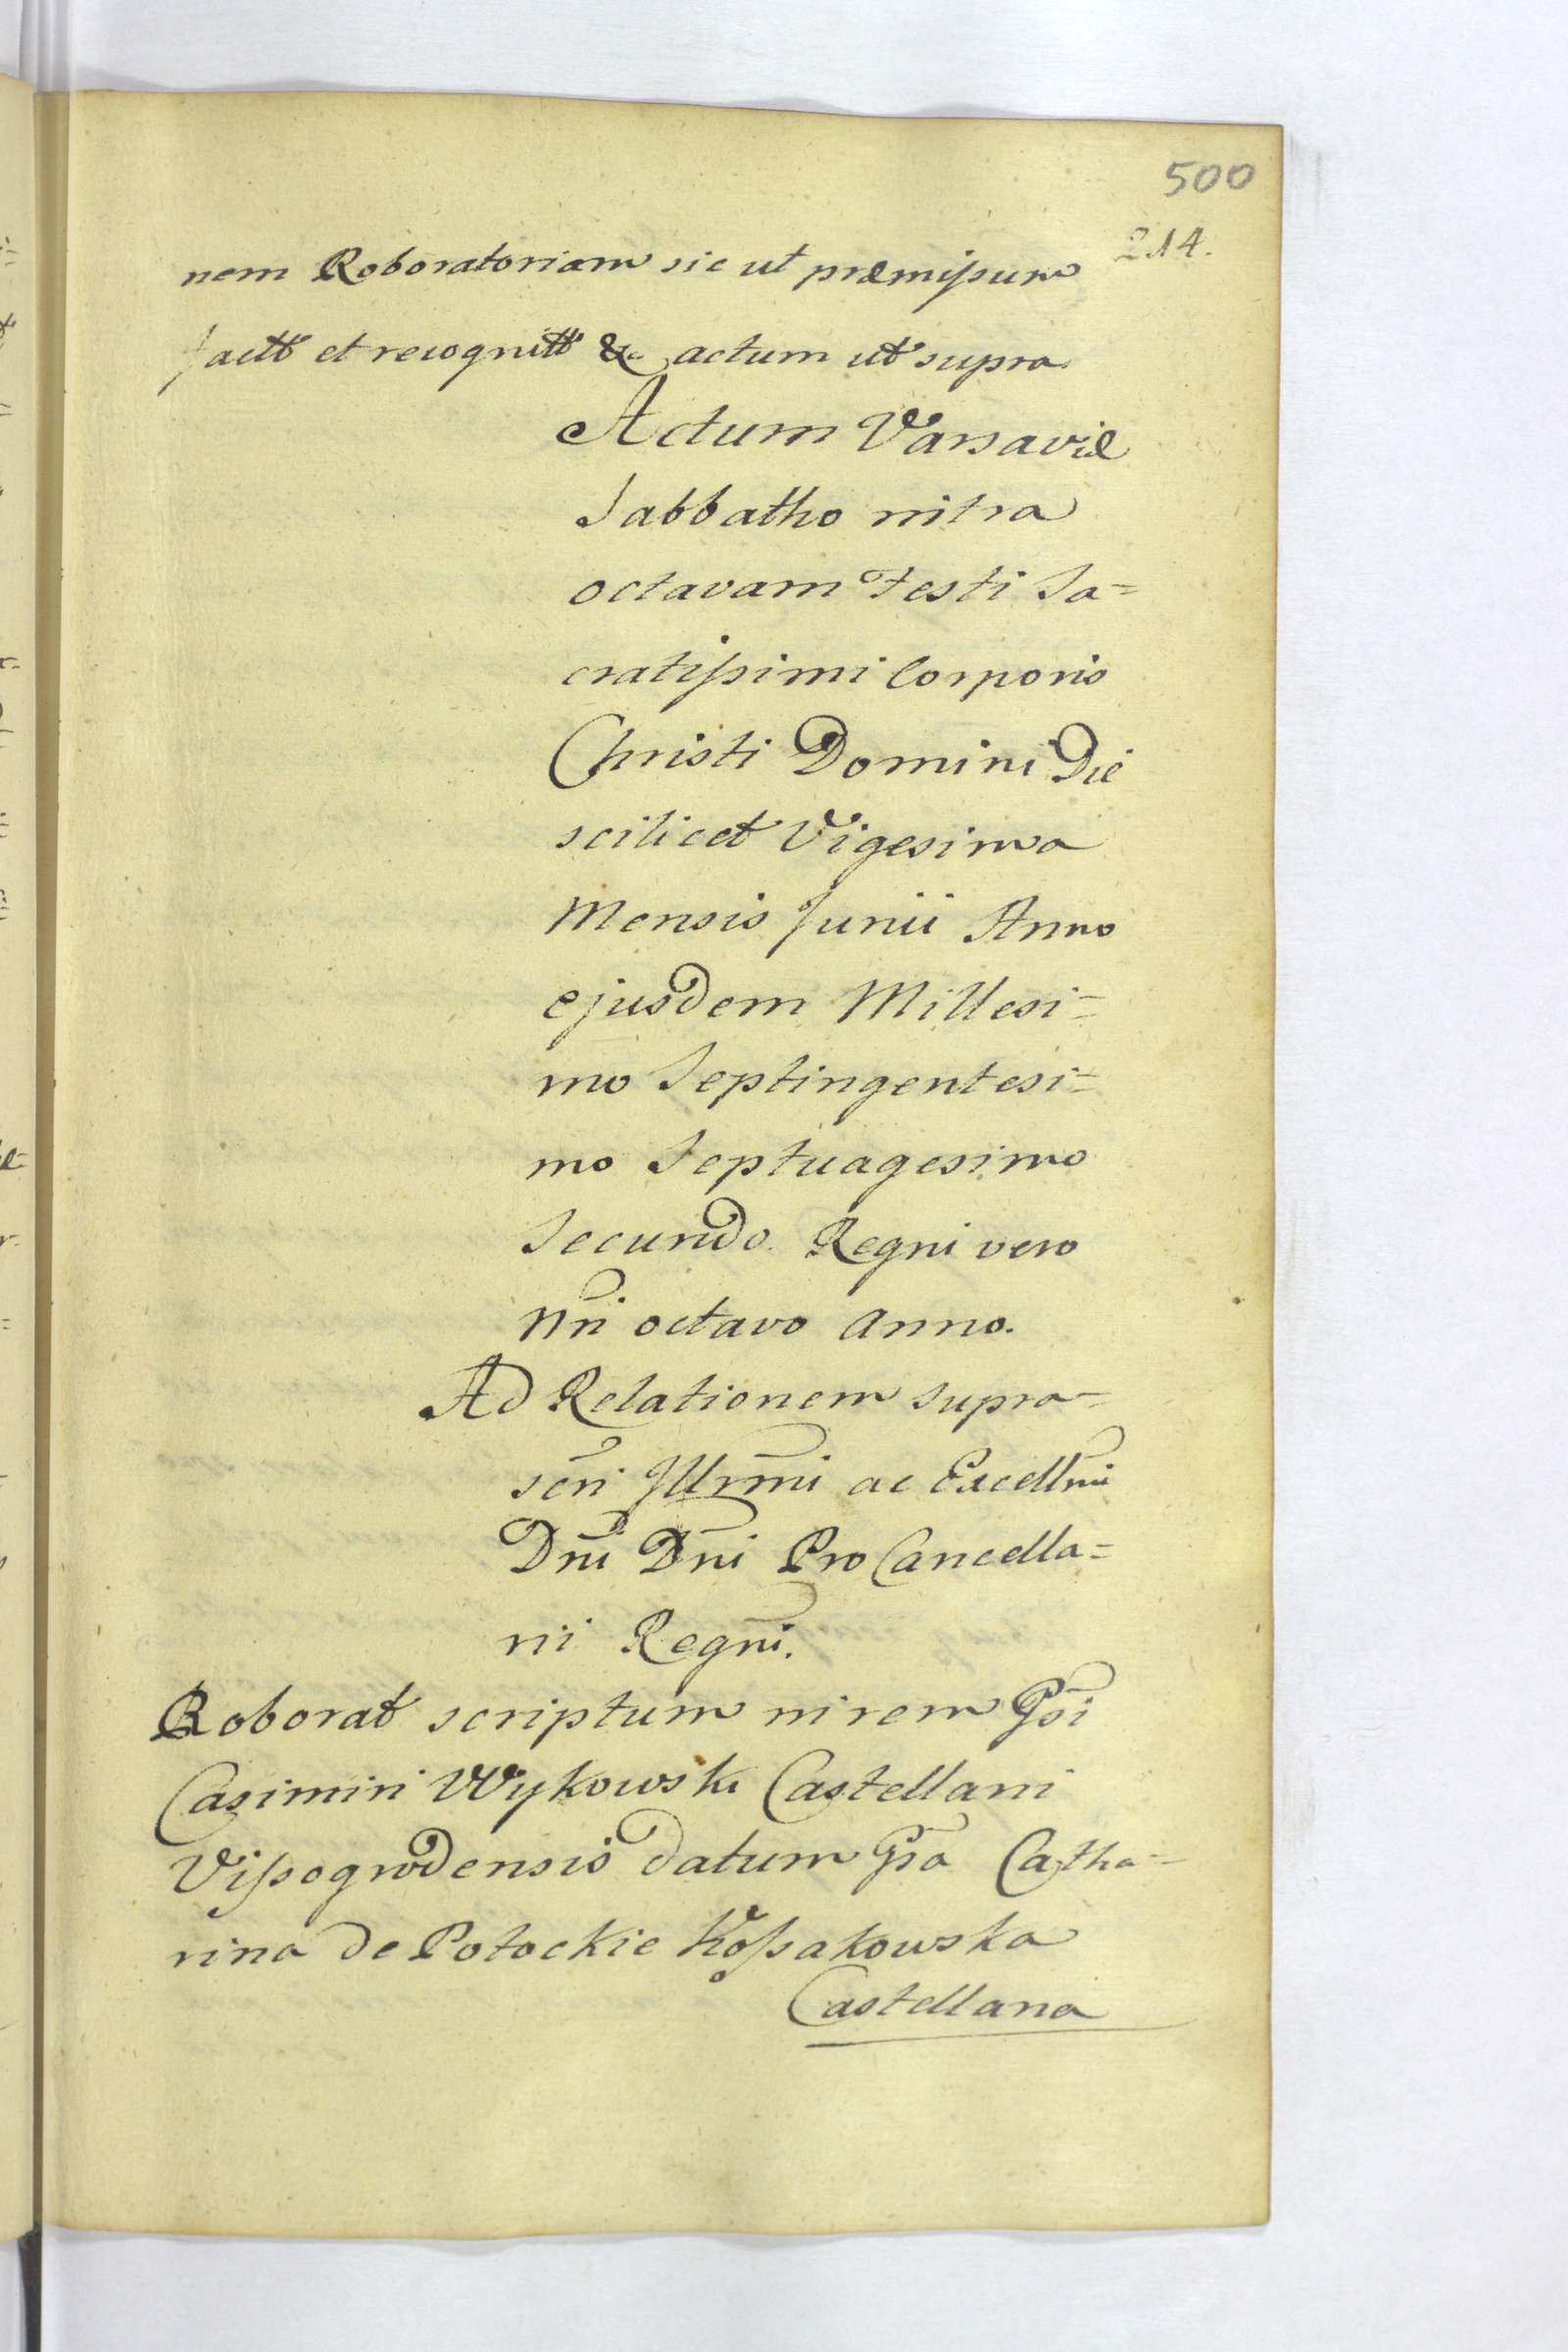 500
214.
nem Roboratoriam sic ut præmissum
factt et recognitt &c actum ut supra
Actum Varsaviæ
Sabbatho intra
octavam Festi Sa=
cratissimi Corporis
Christi Domini Die
scilicet Vigesima
Mensis Junii Anno
ejusdem Millesi=
mo Septingentesi=
mo Septuagesimo
Secundo. Regni vero
Nri octavo Anno.
Ad Relationem supra=
scri Jllrmi ac Excellmi
Dni Dni Pro Cancella=
rii Regni.
Roborat scriptum in rem Gsi
Casimiri Wykowski Castellani
Vissogrodensis datum Gsa Catha=
rina de Potockie Kossakowska
Castellana